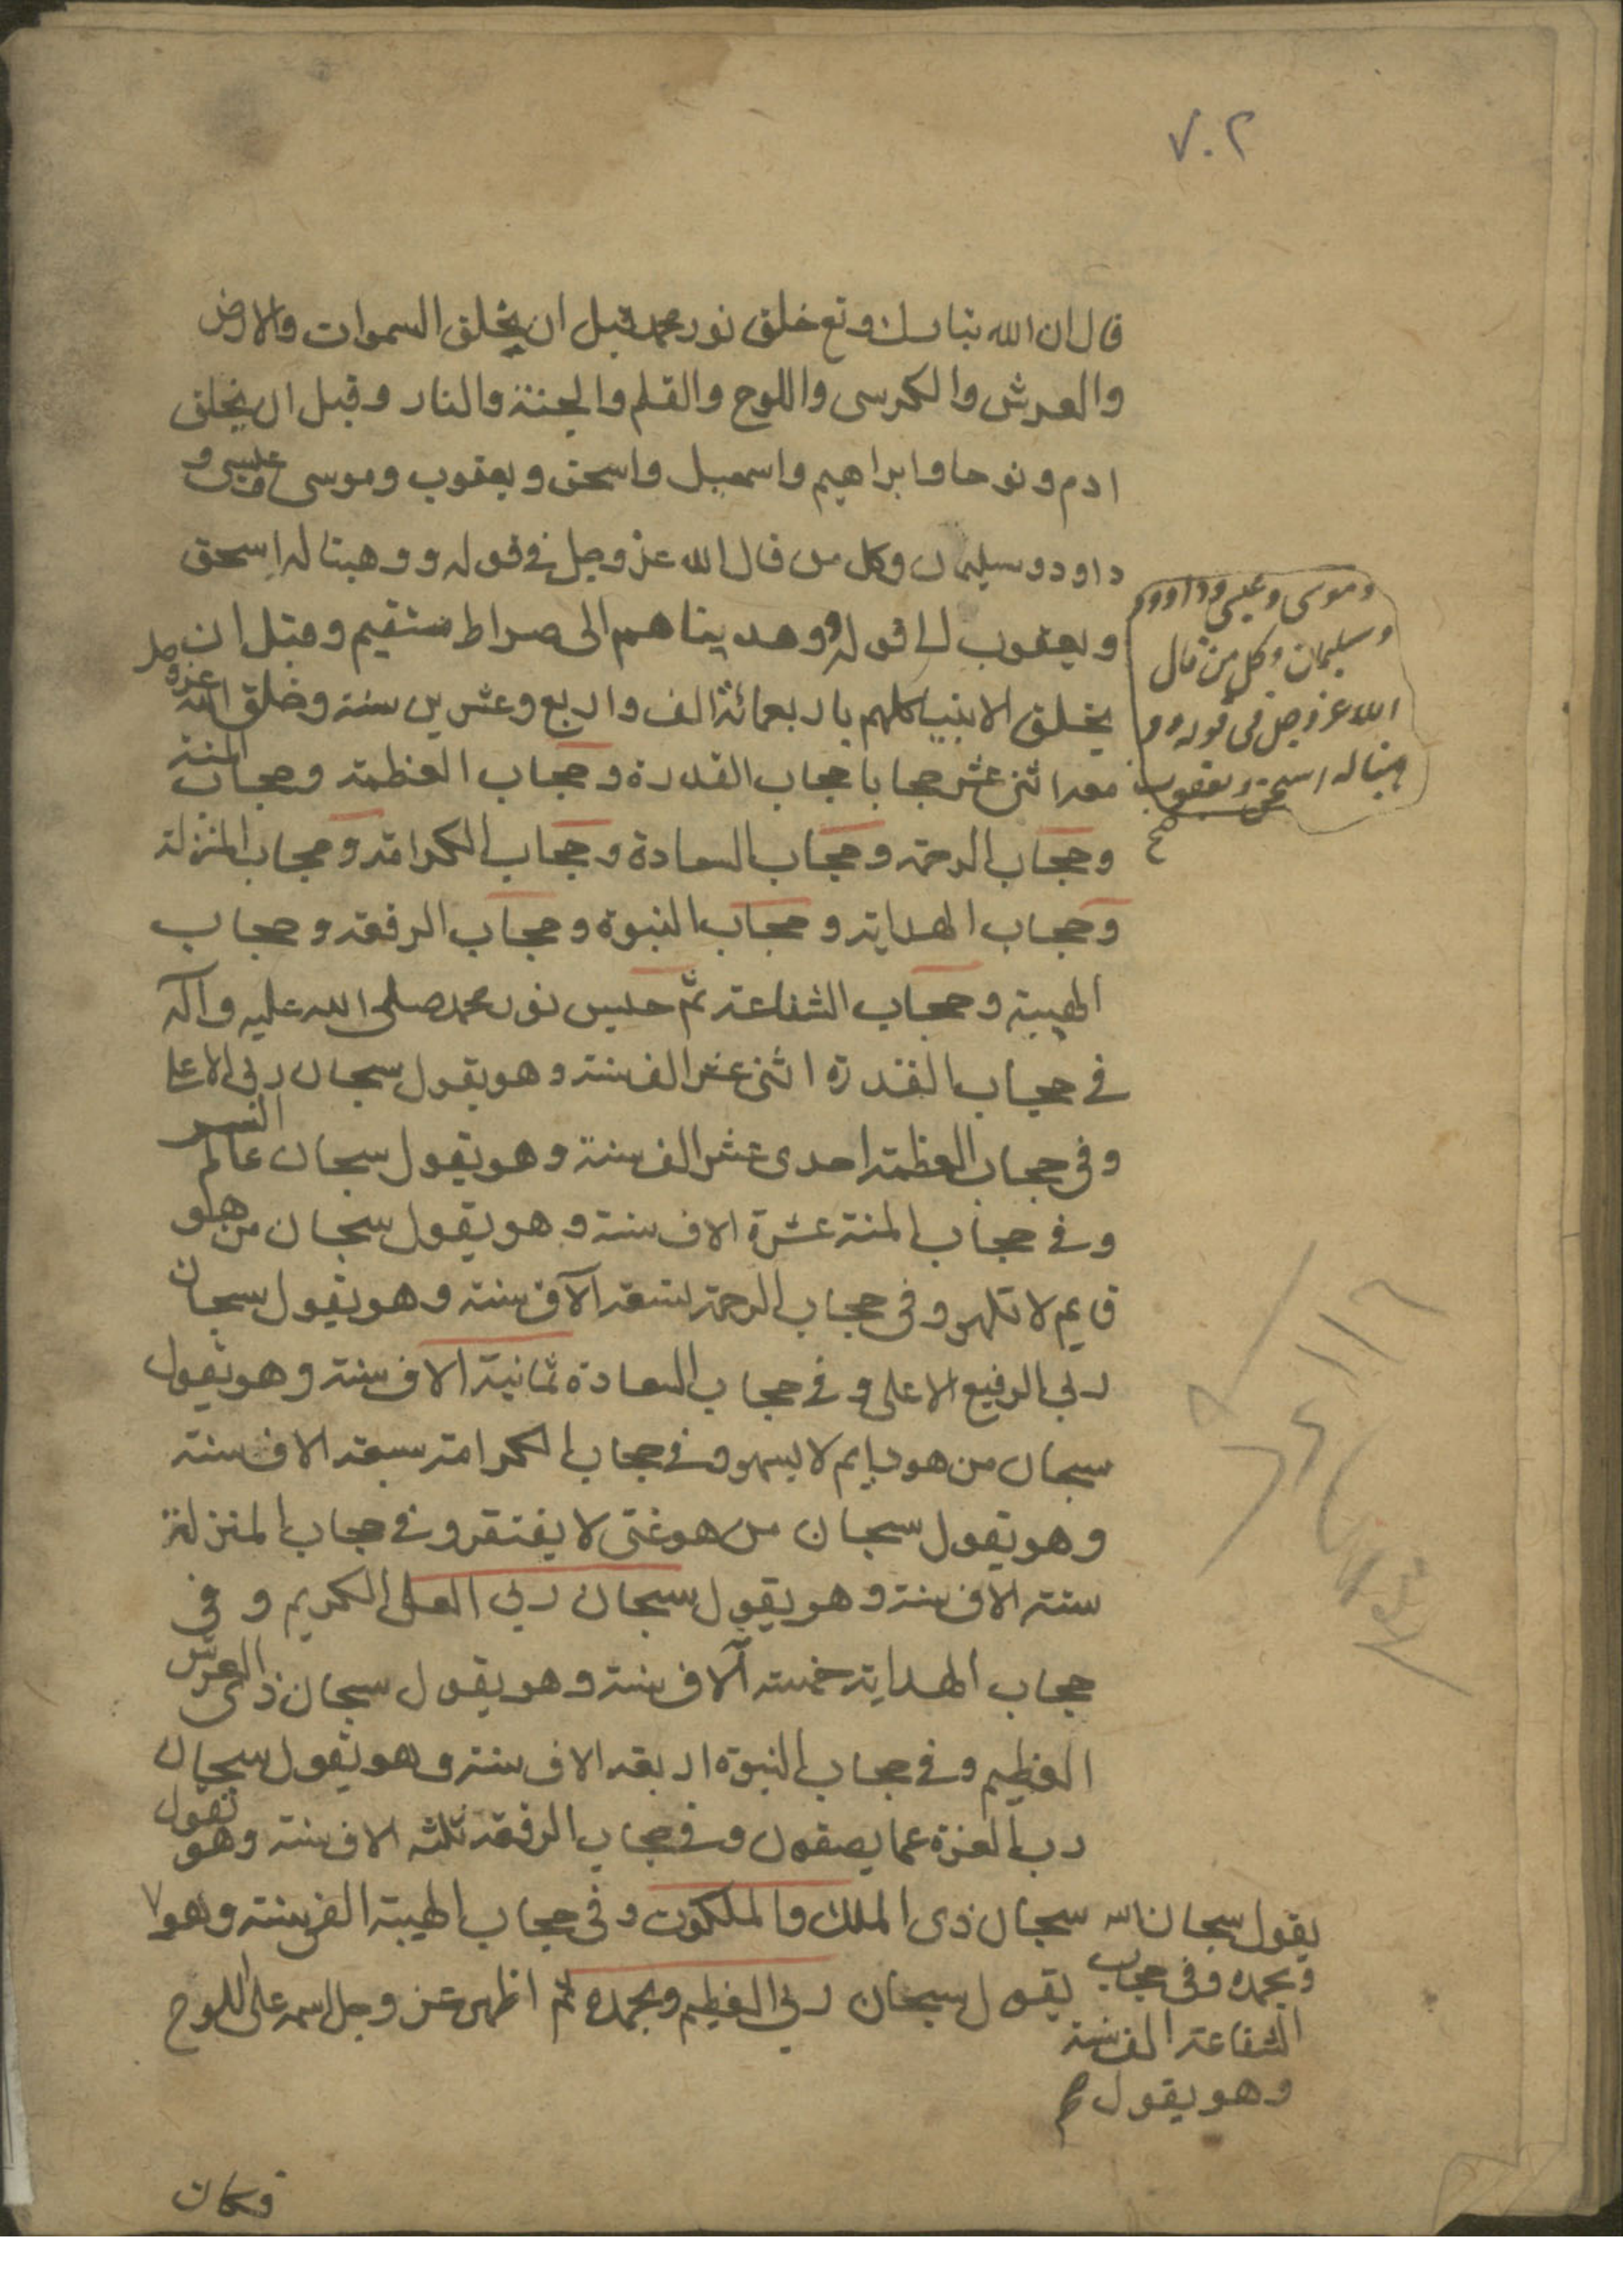 ٧٠٢
قال ان الله تبارك وتع خلق نور محمد قبل ان يخلق السموات والارض
والعرش والكرسى واللوح والقلم والجنة والنار وقبل ان يخلق
ادم ونوحا وابراهيم واسمعيل واسحق ويعقوب وموسى وعيسى و
داود وسليمان وكل من قال الله عز وجل فى قوله ووهبنا له اسحق
ويعقوب الى قوله وهديناهم الى صراط مستقيم وقبل ان
يخلق الانبياء كلهم باربعمائة الف واربع وعشرين سنة وخلق الله عز وجل
معه اثنى عشر حجابا حجاب القدرة وحجاب العظمة وحجاب المنة
وحجاب الرحمة وحجاب السعادة وحجاب الكرامة وحجاب المنزلة
وحجاب الهداية وحجاب النبوة وحجاب الرفعة وحجاب
الهيبة وحجاب الشفاعة ثم حبس نور محمد صلى الله عليه وآله
فى حجاب القدرة اثنى عشر الف سنة وهو يقول سبحان ربى الاعلى
وفى حجاب العظمة احدى عشر الف سنة وهو يقول سبحان عالم السر
وفى حجاب المنة عشرة الاف سنة وهو يقول سبحان من هو
قايم لا يلهو وفى حجاب الرحمة تسعة آلاف سنة وهو يقول سبحان
ربى الرفيع الاعلى وفى حجاب السعادة ثمانية الاف سنة وهو يقول
سبحان من هو دايم لا يسهو وفى حجاب الكرامة سبعة الاف سنة
وهو يقول سبحان من هو غنى لا يفتقر وفى حجاب المنزلة
ستة الاف سنة وهو يقول سبحان ربى العلى الكريم وفى
حجاب الهداية خمسة آلاف سنة وهو يقول سبحان ذى العرش
العظيم وفى حجاب النبوة اربعة الاف سنة وهو يقول سبحان
رب العزة عما يصفون وفى حجاب الرفعة ثلثة الاف سنة وهو يقول
سبحان ذى الملك والملكوت وفى حجاب الهيبة الفى سنة وهو
يقول سبحان ربى العظيم وبحمده ثم اظهر عز وجل اسمه على اللوح
وموسى وعيسى وداود و
وسليمان وكل من قال
الله عز وجل فى قوله وو
هبنا له اسحق ويعقوب
يقول سبحان الله
وبحمده وفى حجاب
الشفاعة الف سنة
وهو يقول
فكان